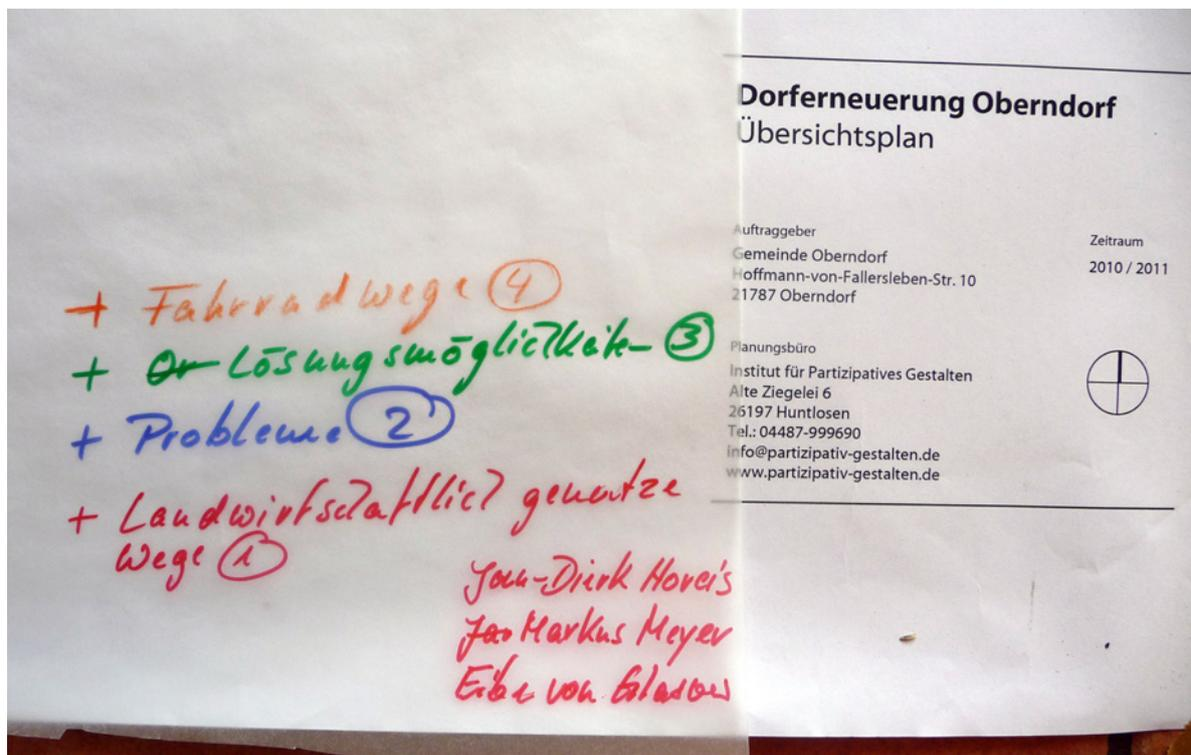 Dorferneuerung Oberndorf
Übersichtsplan
Auftraggeber
Gemeinde Oberndorf
Hoffmann-von-Fallersleben-Str. 10
21787 Oberndorf
Zeitraum
2010 / 2011
Planungsbüro
Institut für Partizipatives Gestalten
Alte Ziegelei 6
26197 Huntlosen
Tel.: 04487-999690
info@partizipativ-gestalten.de
www.partizipativ-gestalten.de
+ Fahrradwege 4
+ Lösungsmöglichkeiten 3
+ Probleme 2
+ Landwirtschaftlich genutze
Wege 1
Jan-Dierk Horeis
Markus Meyer
von